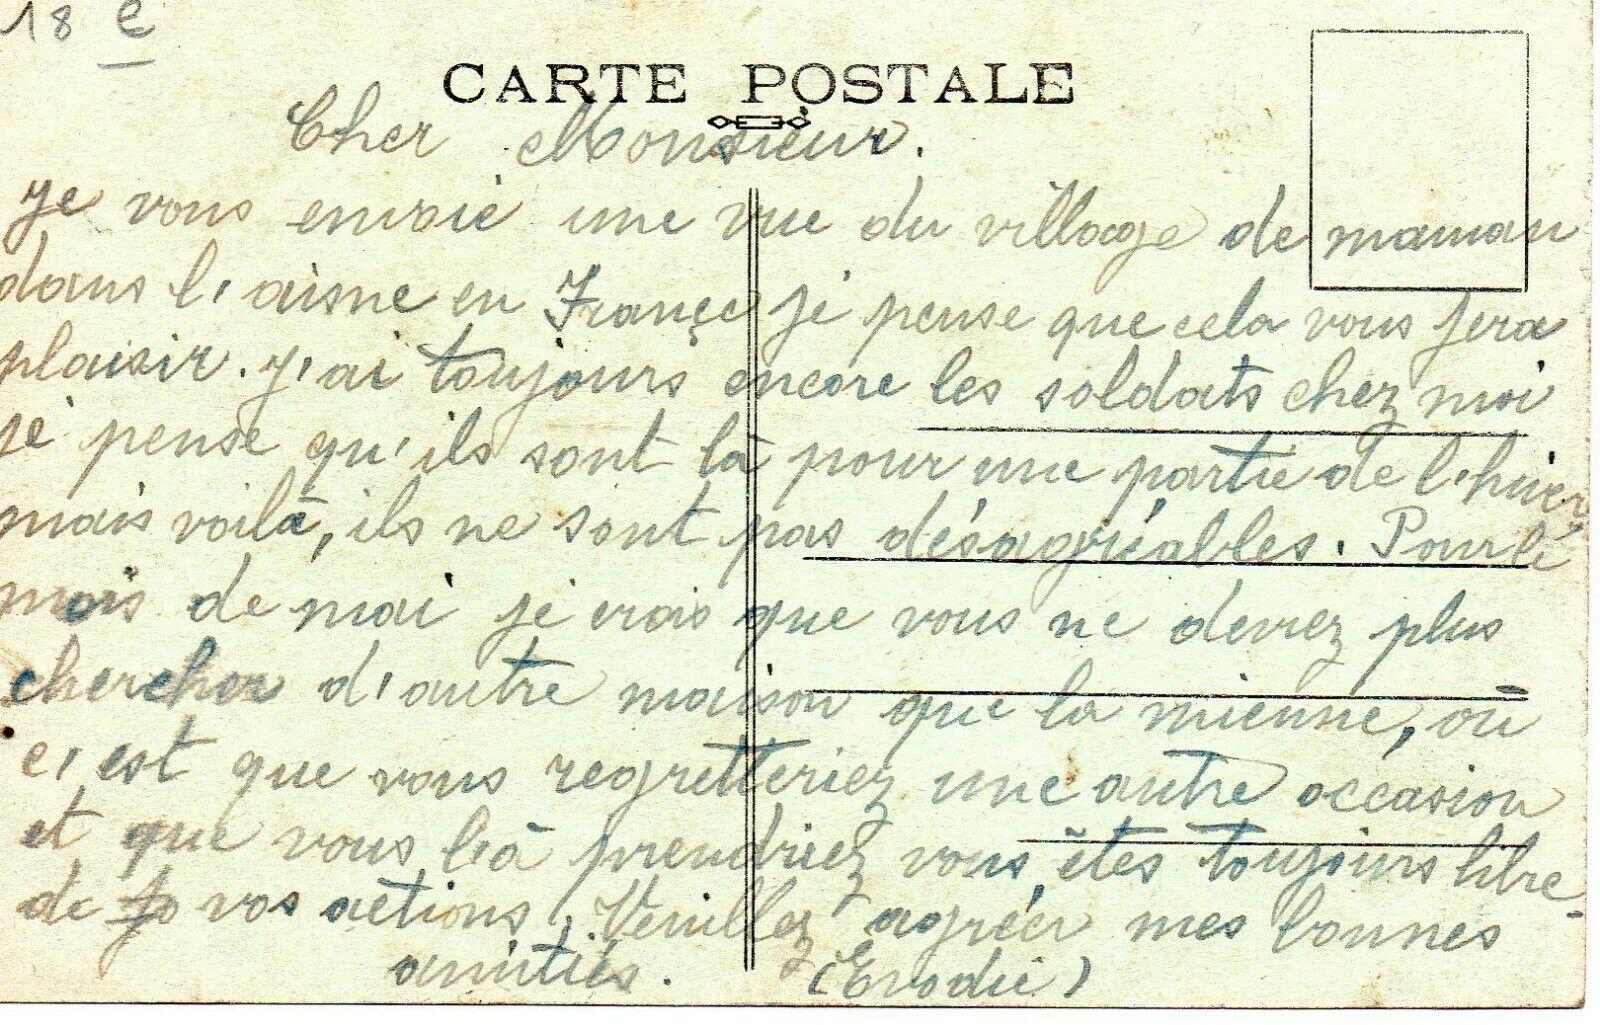 18 €
CARTE POSTALE
Cher Monsieur.
Je vous envoie une vue du village de maman
dans l'aisne en Françe je pense que cela vous fera
plaisir. J'ai toujours encore les soldats chez moi
je pense qu'ils sont là pour une partie de l'hiver
mais voilà, ils ne sont pas désagréables. Pour le
mois de mai je crois que vous ne devrez plus
chercher d'autre maison que la mienne, où
c'est que vous regretteriez une autre occasion
et que vous l'à prendriez vous êtes toujours libre
de vos actions. Veuillez agréer mes bonnes
amitiés. (Evodie)